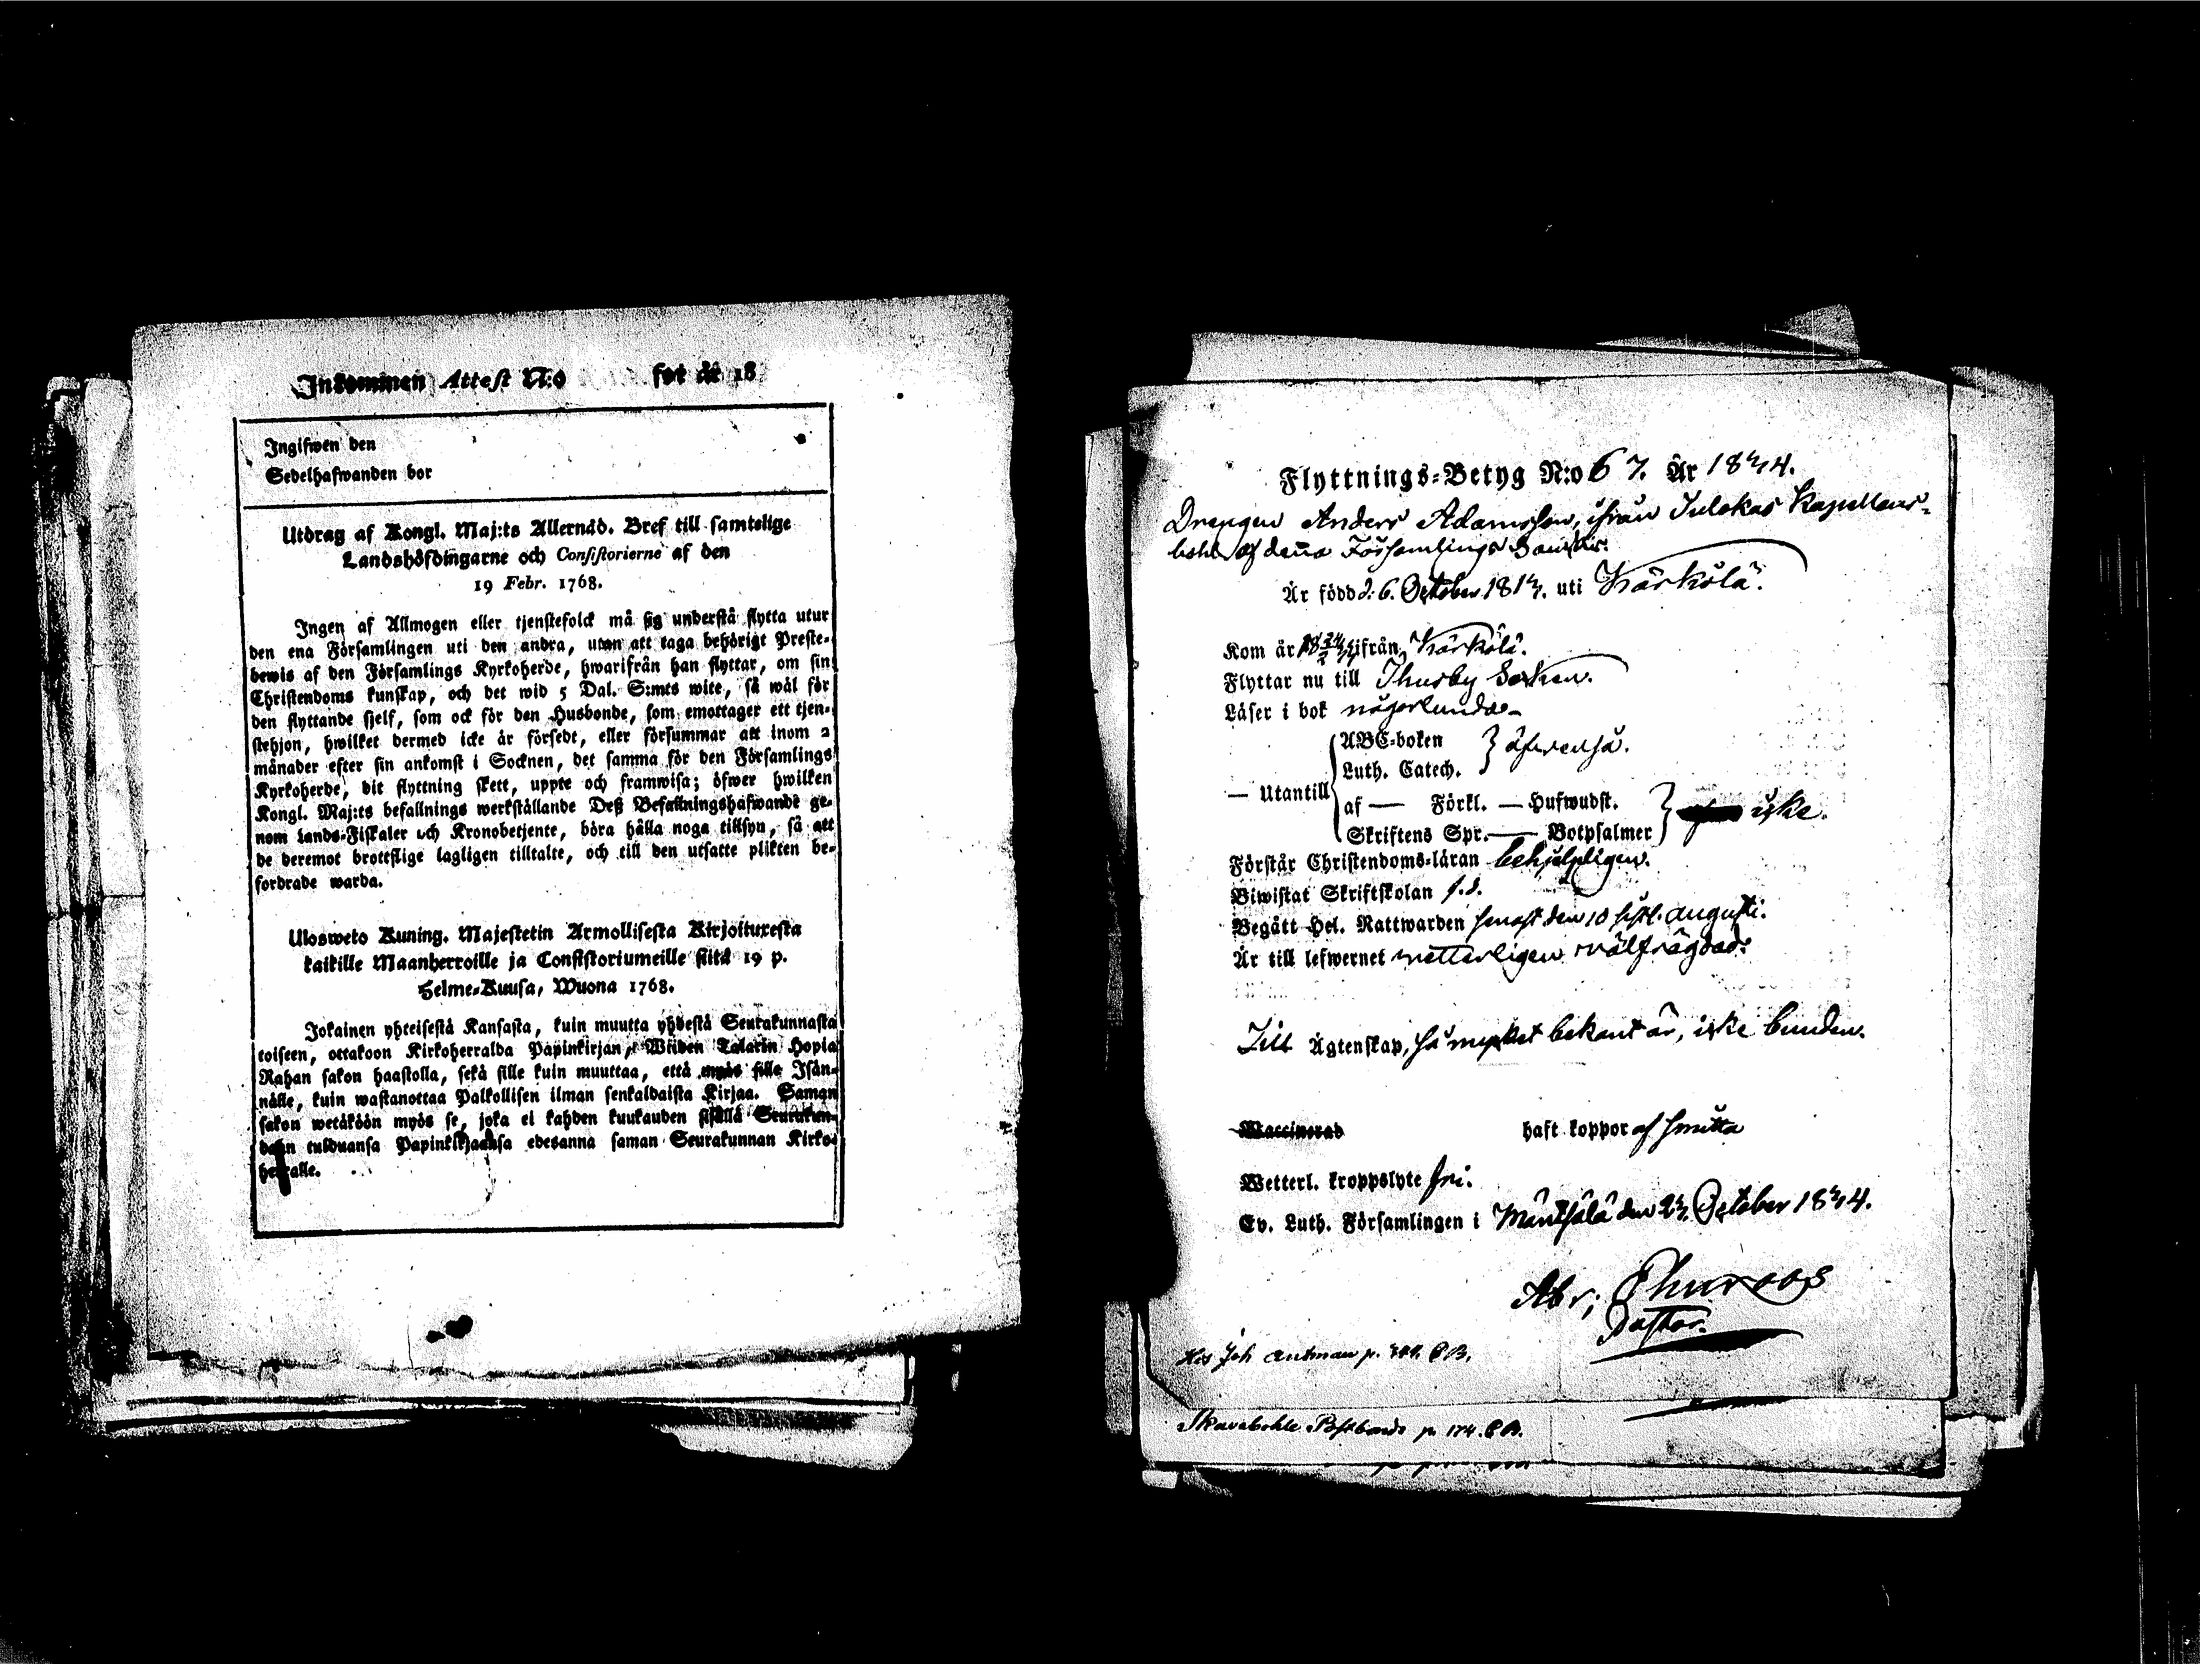 Inkommen Attest N:o för år 18
Ingifwen den
Sedelhafwanden bor
Utdrag af Kongl. Maj:ts Allernåd. Bref till samtelige
Landshöfdingarne och Consistorierne af den
19 Febr. 1768.
Ingen af Allmogen eller tjenstefolck må sig understå flytta utur
den ena Församlingen uti den andra, utan att taga behörigt Preste-
bewis af den Församlings Kyrkoherde, hwarifrån han flyttar, om sin
Christendoms kunskap, och det wid 5 Dal. S:mts wite, så wäl för
den flyttande sjelf, som ock för den Husbonde, som emottager ett tjen-
stehjon, hwilket dermed icke är försedt, eller försummar att inom 2
månader efter sin ankomst i Socknen, det samma för den Församlings
Kyrkoherde, dit flyttning skett, uppte och framwisa; öfwer hwilken
Kongl. Maj:ts befallnings werkställande Deß Befallningshafwande ge-
nom Lands-Fiskaler och Kronobetjente, böra hålla noga tillsyn, så att
de deremot brottslige lagligen tilltalte, och till den utsatte plikten be-
fordrade warda.
Ulosweto Kuning. Majestetin Armollisesta Kirjoituxesta
kaikille Maanherroille ja Consistoriumeille siitä 19 p.
Helme-Kuusa, Wuona 1768.
Jokainen yhteisestä Kansasta, kuin muutta yhdestä Seurakunnasta
toiseen, ottakoon Kirkoherralda Papinkirjan, Wiiden Talarin Hopia
Rahan sakon haastolla, sekä sille kuin muuttaa, että myös sille Isän-
nälle, kuin wastanottaa Palkollisen ilman senkaldaista Kirjaa. Saman
sakon wetäköön myös se, joka ei kahden kuukauden sisällä Seurakun-
daan tulduansa Papinkirjaansa edesanna saman Seurakunnan Kirko-
herralle.
Flyttnings-Betyg N:o 67. År 1844.
Drengen Anders Adamsson, ifrån Kapellans-
bohl af denna Församlings
Är född d. 6. October 1817. uti Kärkölä.
Kom år ifrån Kärkölä.
Flyttar nu till Thusby Socken.
Läser i bok någorlunda
— Utantill
ABC-boken
Luth. Catech. äfvenså.
af — Förkl. — Hufwudst.
Skriftens Spr. — Botpsalmer icke.
Förstår Christendoms-läran behjelpligen.
Biwistat Skriftskolan
Begått Hel. Nattwarden senast den 18 sistl. augusti.
Är till lefwernet wetterligen wälfrägdad.
Till Ägtenskap, så mycket bekant är, icke bunden.
Waccinerad haft koppor af smitta
Wetterl. kroppslyte fri.
Ev. Luth. Församlingen i Mäntsälä den 27. October 1844.
Abr; Thuroos
Pastor.
Skavabohle p. 174. C.B.